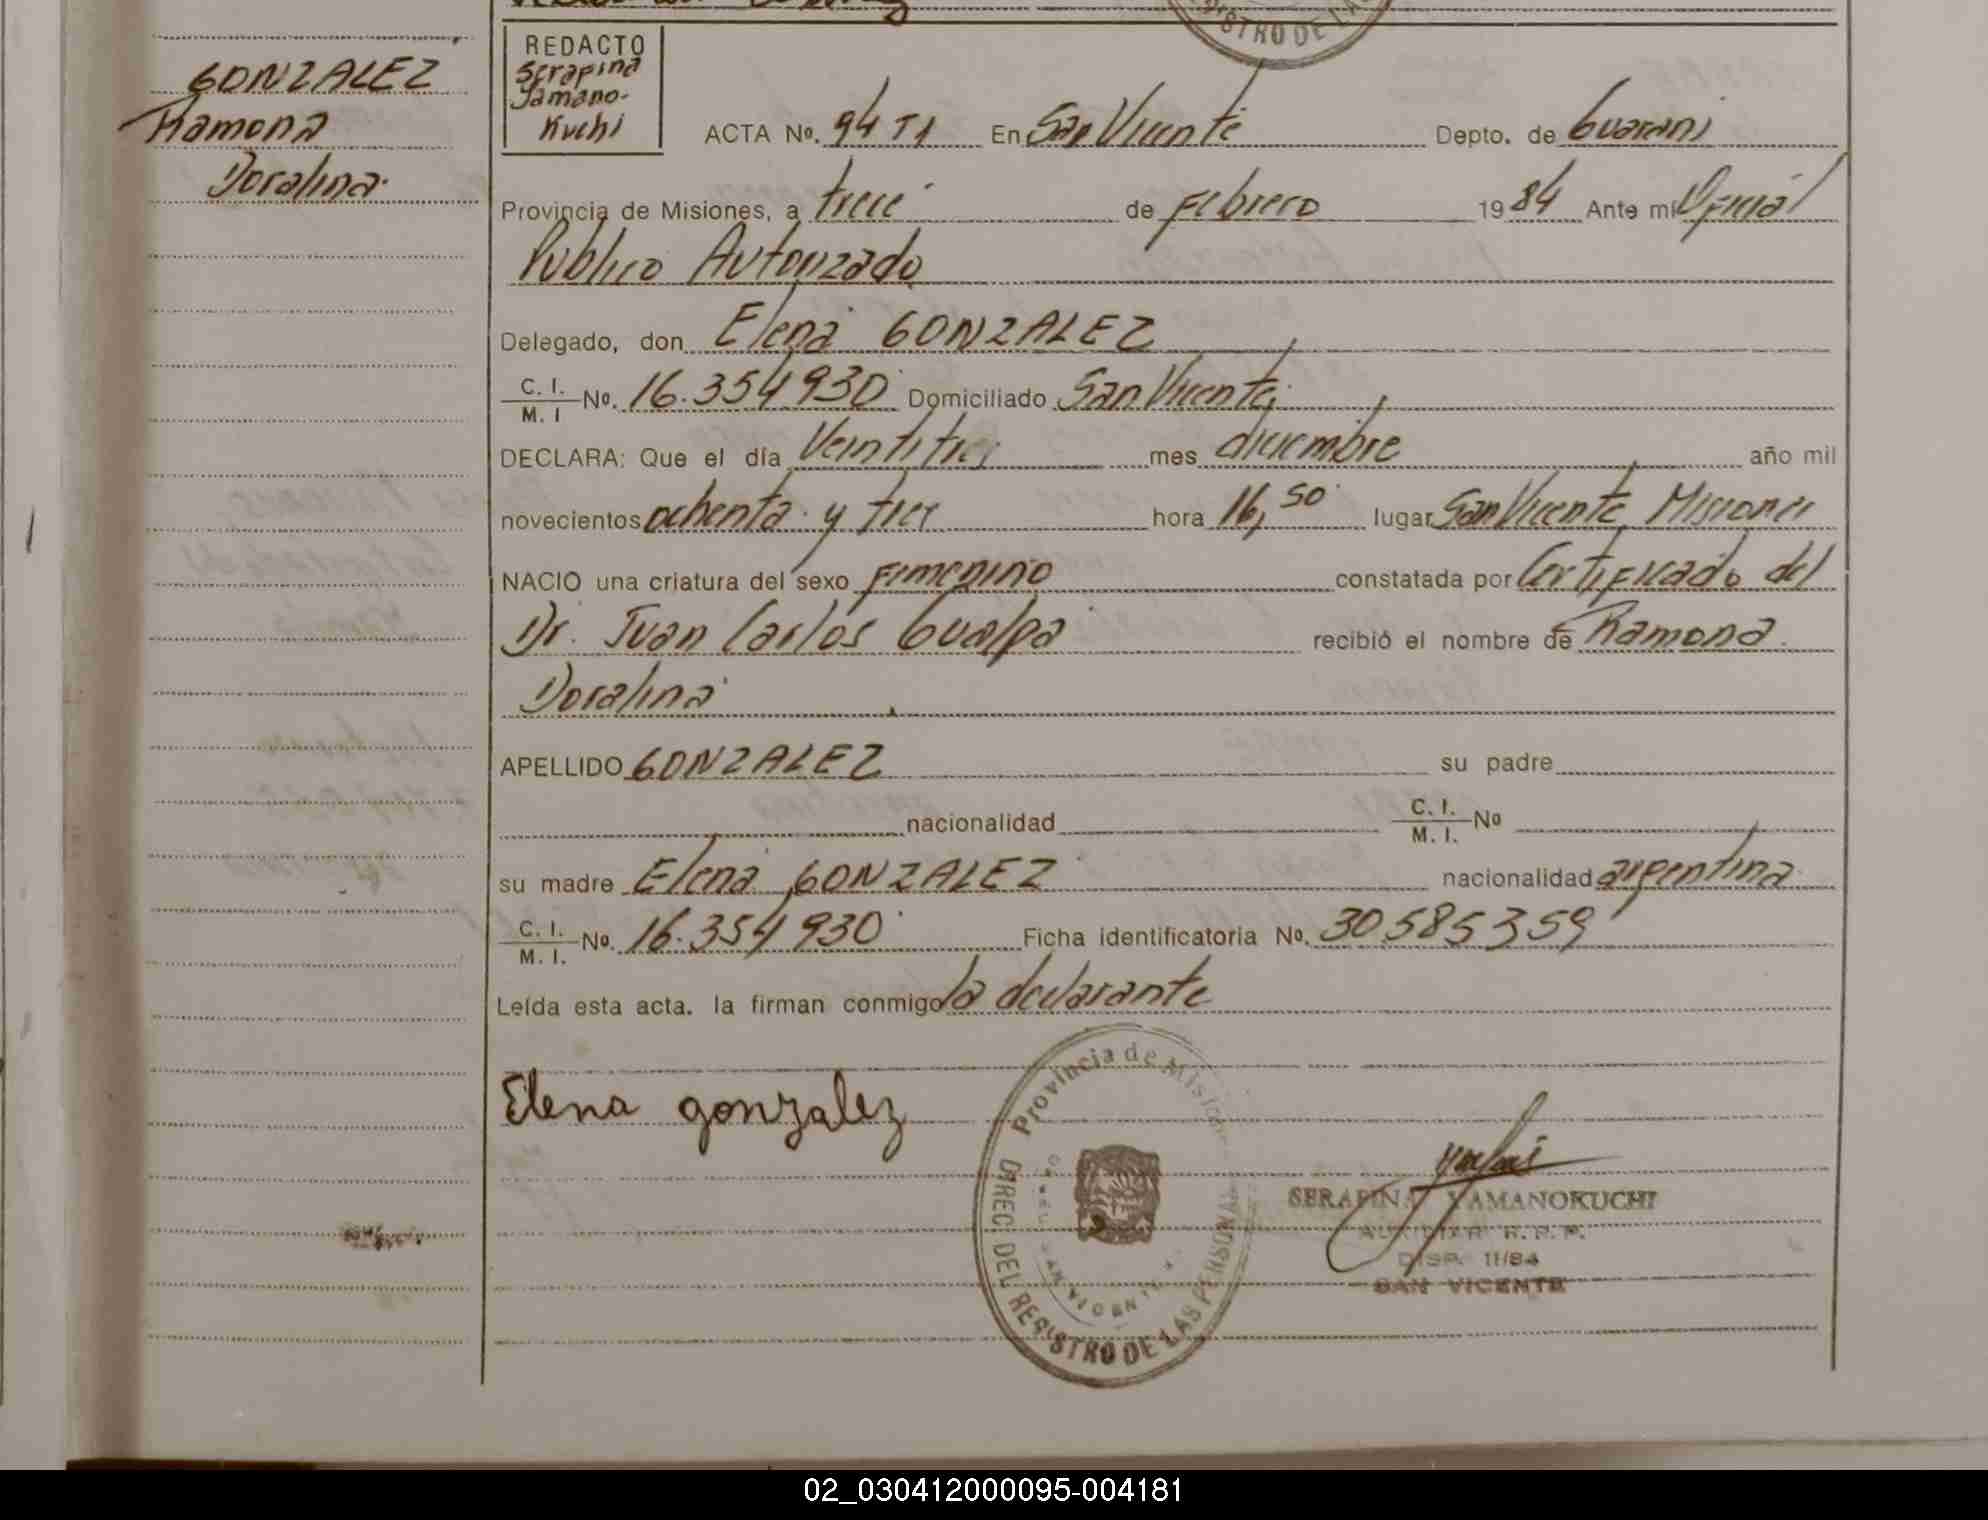 GONZALEZ
Ramona
Doralina
REDACTO
Serafina
Yamano-
Kuchi
ACTA Nº. 94 T1 En San Vicente Depto. de Guarani
Provincia de Misiones, a trece de Febrero 1984 Ante mi Oficial
Publico Autorizado
Delegado, don Elena GONZALEZ
C. I. / M. I Nº. 16.354930 Domiciliado San Vicente
DECLARA: Que el día Veintitres mes diciembre año mil
novecientos ochenta y tres hora 16,50 lugar San Vicente Misiones
NACIO una criatura del sexo Femenino constatada por Certificado del
Dr. Juan Carlos Gualpa recibió el nombre de Ramona
Doralina
APELLIDO GONZALEZ su padre
nacionalidad C. I. / M. I. Nº
su madre Elena GONZALEZ nacionalidad argentina
C. I. / M. I. Nº. 16.354930 Ficha identificatoria Nº. 30585359
Leída esta acta. la firman conmigo la declarante
Elena gonzalez
Provincia de Misiones
DIREC. DEL REGISTRO DE LAS PERSONAS
SERAFINA YAMANOKUCHI
AUXILIAR R. P. P.
DISP. 11/84
SAN VICENTE
02_030412000095-004181